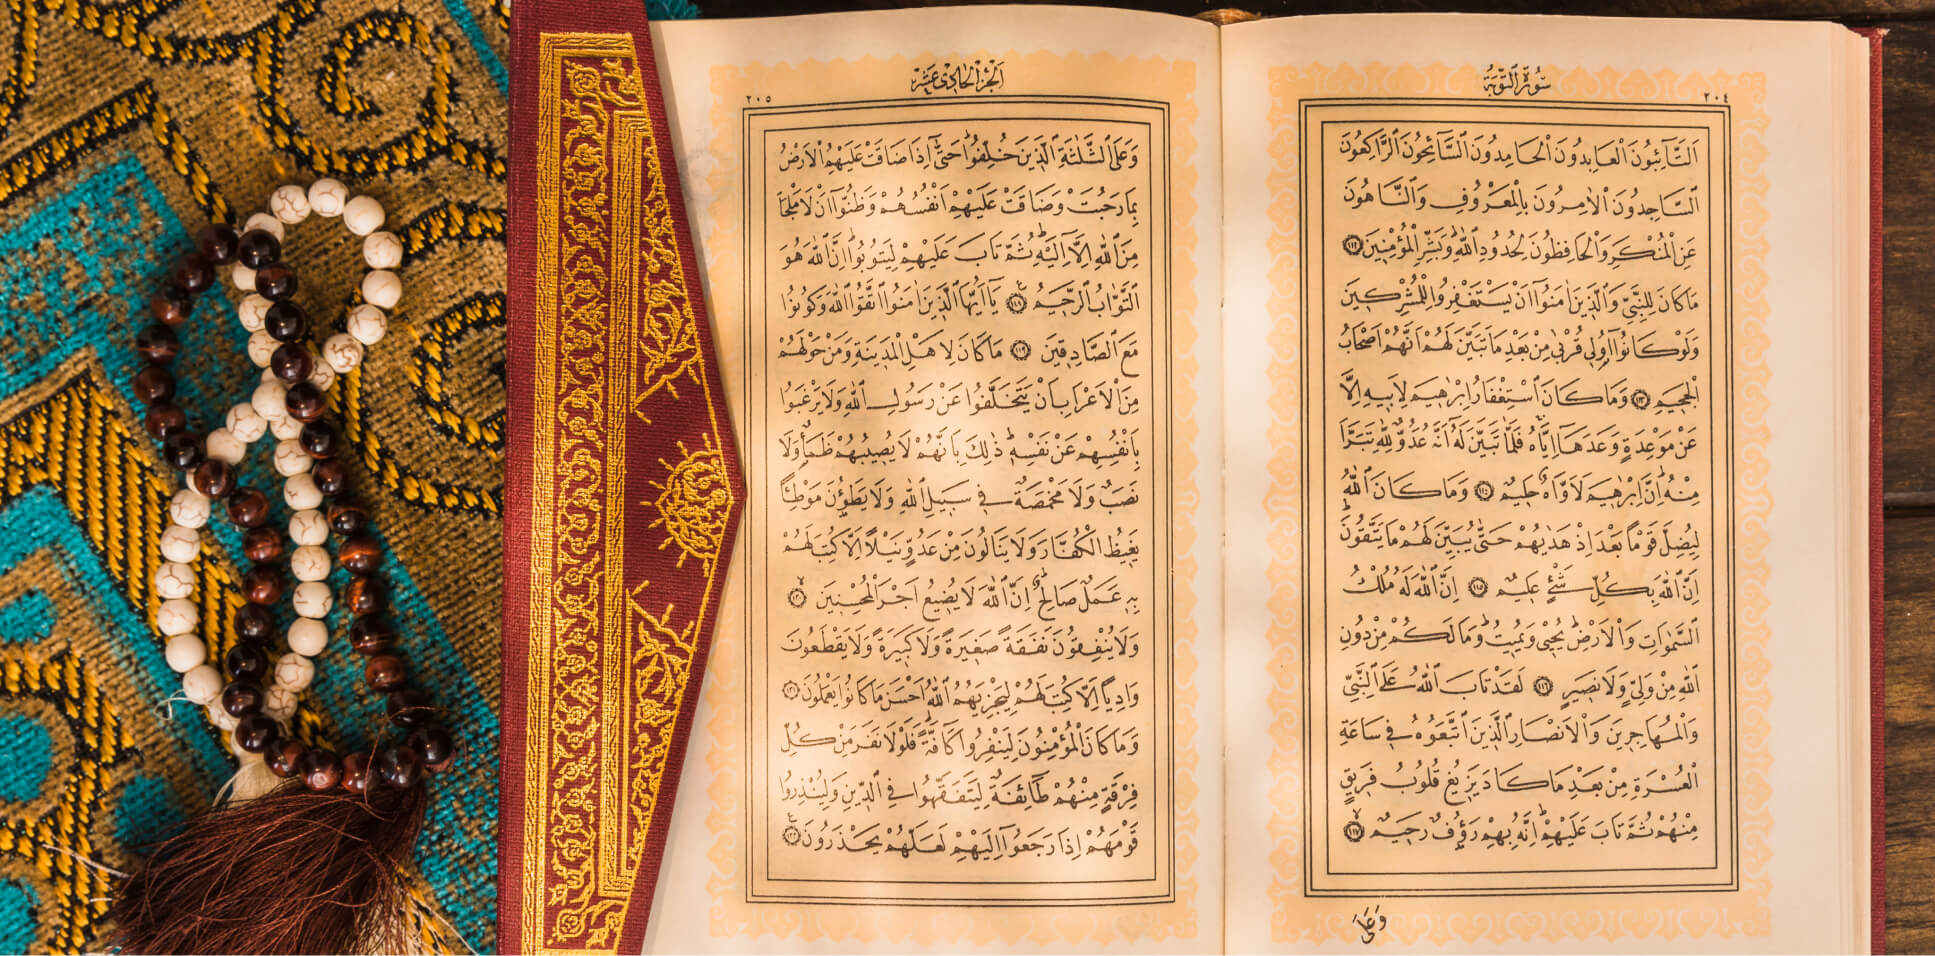 سُورَةُ التَّوْبَةِ
٢٠٤
اَلتَّٓائِبُونَ الْعَابِدُونَ الْحَامِدُونَ السَّٓائِحُونَ الرَّاكِعُونَ
السَّاجِدُونَ الْاٰمِرُونَ بِالْمَعْرُوفِ وَالنَّاهُونَ
عَنِ الْمُنْكَرِ وَالْحَافِظُونَ لِحُدُودِ اللّٰهِۜ وَبَشِّرِ الْمُؤْمِن۪ينَ ﴿١١٢﴾
مَا كَانَ لِلنَّبِيِّ وَالَّذ۪ينَ اٰمَنُٓوا اَنْ يَسْتَغْفِرُوا لِلْمُشْرِك۪ينَ
وَلَوْ كَانُٓوا اُو۬ل۪ي قُرْبٰى مِنْ بَعْدِ مَا تَبَيَّنَ لَهُمْ اَنَّهُمْ اَصْحَابُ
الْجَح۪يمِ ﴿١١٣﴾ وَمَا كَانَ اسْتِغْفَارُ اِبْرٰه۪يمَ لِاَب۪يهِ اِلَّا
عَنْ مَوْعِدَةٍ وَعَدَهَٓا اِيَّاهُۚ فَلَمَّا تَبَيَّنَ لَهُٓ اَنَّهُ عَدُوٌّ لِلّٰهِ تَبَرَّاَ
مِنْهُۜ اِنَّ اِبْرٰه۪يمَ لَاَوَّاهٌ حَل۪يمٌ ﴿١١٤﴾ وَمَا كَانَ اللّٰهُ
لِيُضِلَّ قَوْماً بَعْدَ اِذْ هَدٰيهُمْ حَتّٰى يُبَيِّنَ لَهُمْ مَا يَتَّقُونَۜ
اِنَّ اللّٰهَ بِكُلِّ شَيْءٍ عَل۪يمٌ ﴿١١٥﴾ اِنَّ اللّٰهَ لَهُ مُلْكُ
السَّمٰوَاتِ وَالْاَرْضِۜ يُحْي۪ وَيُم۪يتُۜ وَمَا لَكُمْ مِنْ دُونِ
اللّٰهِ مِنْ وَلِيٍّ وَلَا نَص۪يرٍ ﴿١١٦﴾ لَقَدْ تَابَ اللّٰهُ عَلَى النَّبِيِّ
وَالْمُهَاجِر۪ينَ وَالْاَنْصَارِ الَّذ۪ينَ اتَّبَعُوهُ ف۪ي سَاعَةِ
الْعُسْرَةِ مِنْ بَعْدِ مَا كَادَ يَز۪يغُ قُلُوبُ فَر۪يقٍ
مِنْهُمْ ثُمَّ تَابَ عَلَيْهِمْۜ اِنَّهُ بِهِمْ رَؤُ۫فٌ رَح۪يمٌ ﴿١١٧﴾
وَعَلَى
اَلْجُزْءُ الْحَاد۪ي عَشَرَ
٢٠٥
وَعَلَى الثَّلٰثَةِ الَّذ۪ينَ خُلِّفُواۜ حَتّٰٓى اِذَا ضَاقَتْ عَلَيْهِمُ الْاَرْضُ
بِمَا رَحُبَتْ وَضَاقَتْ عَلَيْهِمْ اَنْفُسُهُمْ وَظَنُّٓوا اَنْ لَا مَلْجَاَ
مِنَ اللّٰهِ اِلَّٓا اِلَيْهِۜ ثُمَّ تَابَ عَلَيْهِمْ لِيَتُوبُواۜ اِنَّ اللّٰهَ هُوَ
التَّوَّابُ الرَّح۪يمُ ﴿١١٨﴾ يَٓا اَيُّهَا الَّذ۪ينَ اٰمَنُوا اتَّقُوا اللّٰهَ وَكُونُوا
مَعَ الصَّادِق۪ينَ ﴿١١٩﴾ مَا كَانَ لِاَهْلِ الْمَد۪ينَةِ وَمَنْ حَوْلَهُمْ
مِنَ الْاَعْرَابِ اَنْ يَتَخَلَّفُوا عَنْ رَسُولِ اللّٰهِ وَلَا يَرْغَبُوا
بِاَنْفُسِهِمْ عَنْ نَفْسِه۪ۜ ذٰلِكَ بِاَنَّهُمْ لَا يُص۪يبُهُمْ ظَمَاٌ وَلَا
نَصَبٌ وَلَا مَخْمَصَةٌ ف۪ي سَب۪يلِ اللّٰهِ وَلَا يَطَؤُ۫نَ مَوْطِئاً
يَغ۪يظُ الْكُفَّارَ وَلَا يَنَالُونَ مِنْ عَدُوٍّ نَيْلاً اِلَّا كُتِبَ لَهُمْ
بِه۪ عَمَلٌ صَالِحٌۜ اِنَّ اللّٰهَ لَا يُض۪يعُ اَجْرَ الْمُحْسِن۪ينَ ﴿١٢٠﴾
وَلَا يُنْفِقُونَ نَفَقَةً صَغ۪يرَةً وَلَا كَب۪يرَةً وَلَا يَقْطَعُونَ
وَادِياً اِلَّا كُتِبَ لَهُمْ لِيَجْزِيَهُمُ اللّٰهُ اَحْسَنَ مَا كَانُوا يَعْمَلُونَ ﴿١٢١﴾
وَمَا كَانَ الْمُؤْمِنُونَ لِيَنْفِرُوا كَٓافَّةًۜ فَلَوْلَا نَفَرَ مِنْ كُلِّ
فِرْقَةٍ مِنْهُمْ طَٓائِفَةٌ لِيَتَفَقَّهُوا فِي الدّ۪ينِ وَلِيُنْذِرُوا
قَوْمَهُمْ اِذَا رَجَعُٓوا اِلَيْهِمْ لَعَلَّهُمْ يَحْذَرُونَ ﴿١٢٢﴾